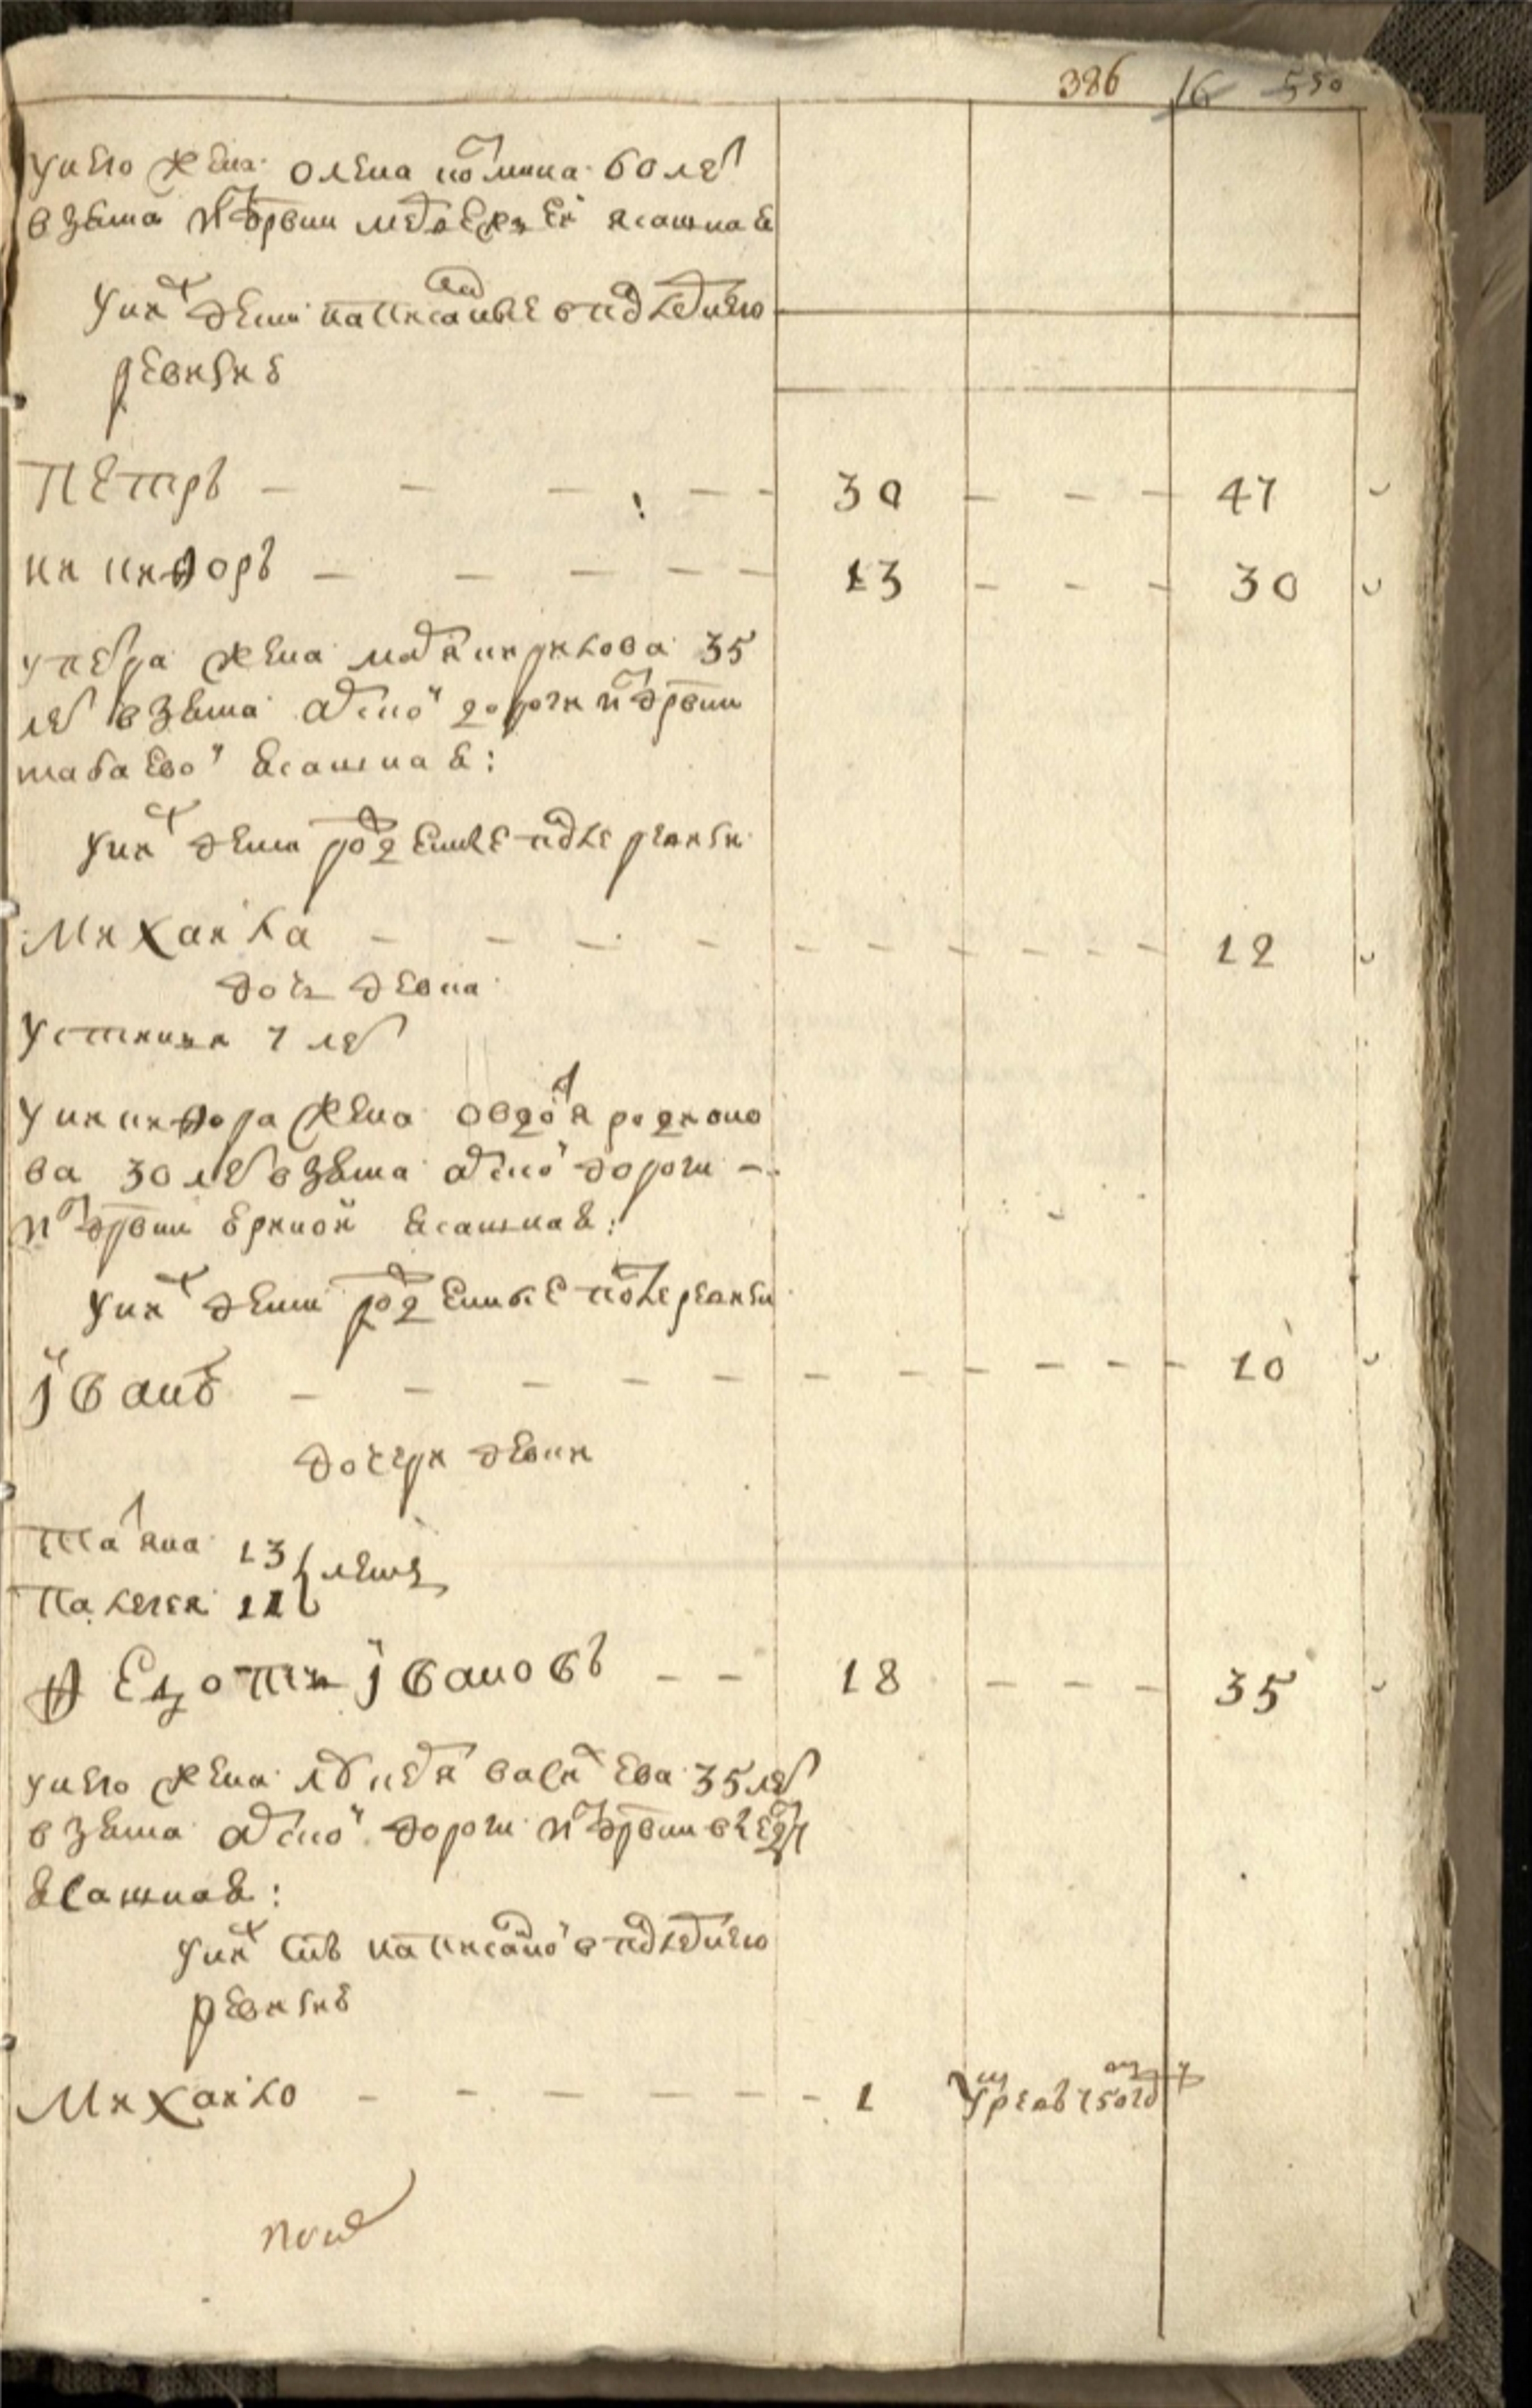 386 16 550
у него жена олена козмина 60 лет
взята из деревни медвежей ясашная
у них дети написанные в последнею
ревизию
Петръ — — — — 30 — — — 47
никифоръ — — — — — 13 — — — 30
у петра жена марья кирилова 35
лет взята арской дороги из деревни
ясашная:
у них дети рожденные после ревизи
Михаила — — — — — — — — — 12
дочь девка
устинья 7 лет
у никифора жена овдотья родионо
ва 30 лет взята арской дороги —
из деревни ясашная:
у них дети рожденные после ревизи
іванъ — — — — — — — — — 10
дочери девки
татьяна 13 } лет
палагея 11
Федотъ івановъ — — 18 — — — 35
у него жена васильева 35 лет
взята арской дороги из деревни
ясашная:
у них сынъ написанной в последнею
ревизию
Михайло — — — — — — 1 умре въ 750 году